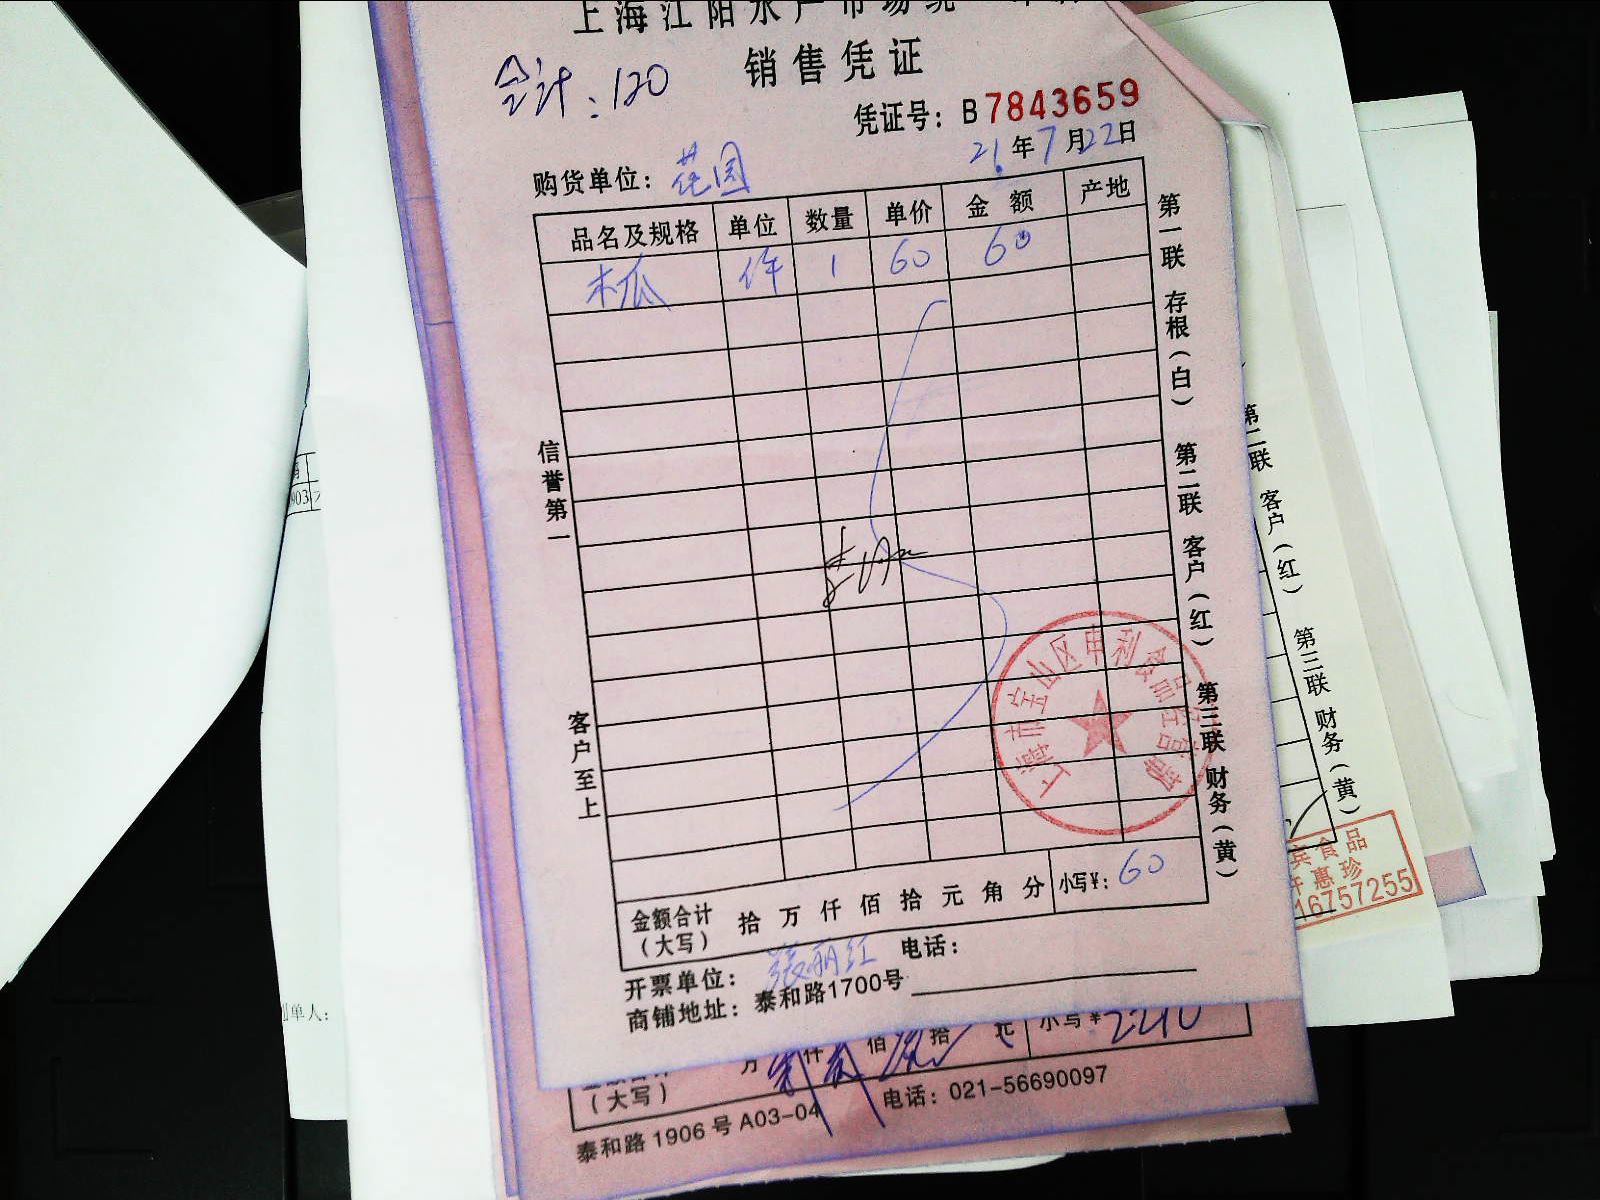 上海江阳水产市场统一
销售凭证
合计:120
凭证号: B7843659
21年7月22日
购货单位: 花园
品名及规格 单位 数量 单价 金额 产地
木瓜 件 1 60 60
信誉第一
客户至上
第一联 存根(白) 第二联 客户(红) 第三联 财务(黄)
上海市宝山区申利食品经营部
金额合计(大写) 拾 万 仟 佰 拾 元 角 分 小写¥: 60
开票单位: 张丽红 电话:
商铺地址: 泰和路1700号
第二联 客户(红) 第三联 财务(黄)
食品
惠珍
16757255
903
单人:
(大写) 万 仟 佰 拾 小写¥ 2210
泰和路1906号A03-04 电话: 021-56690097